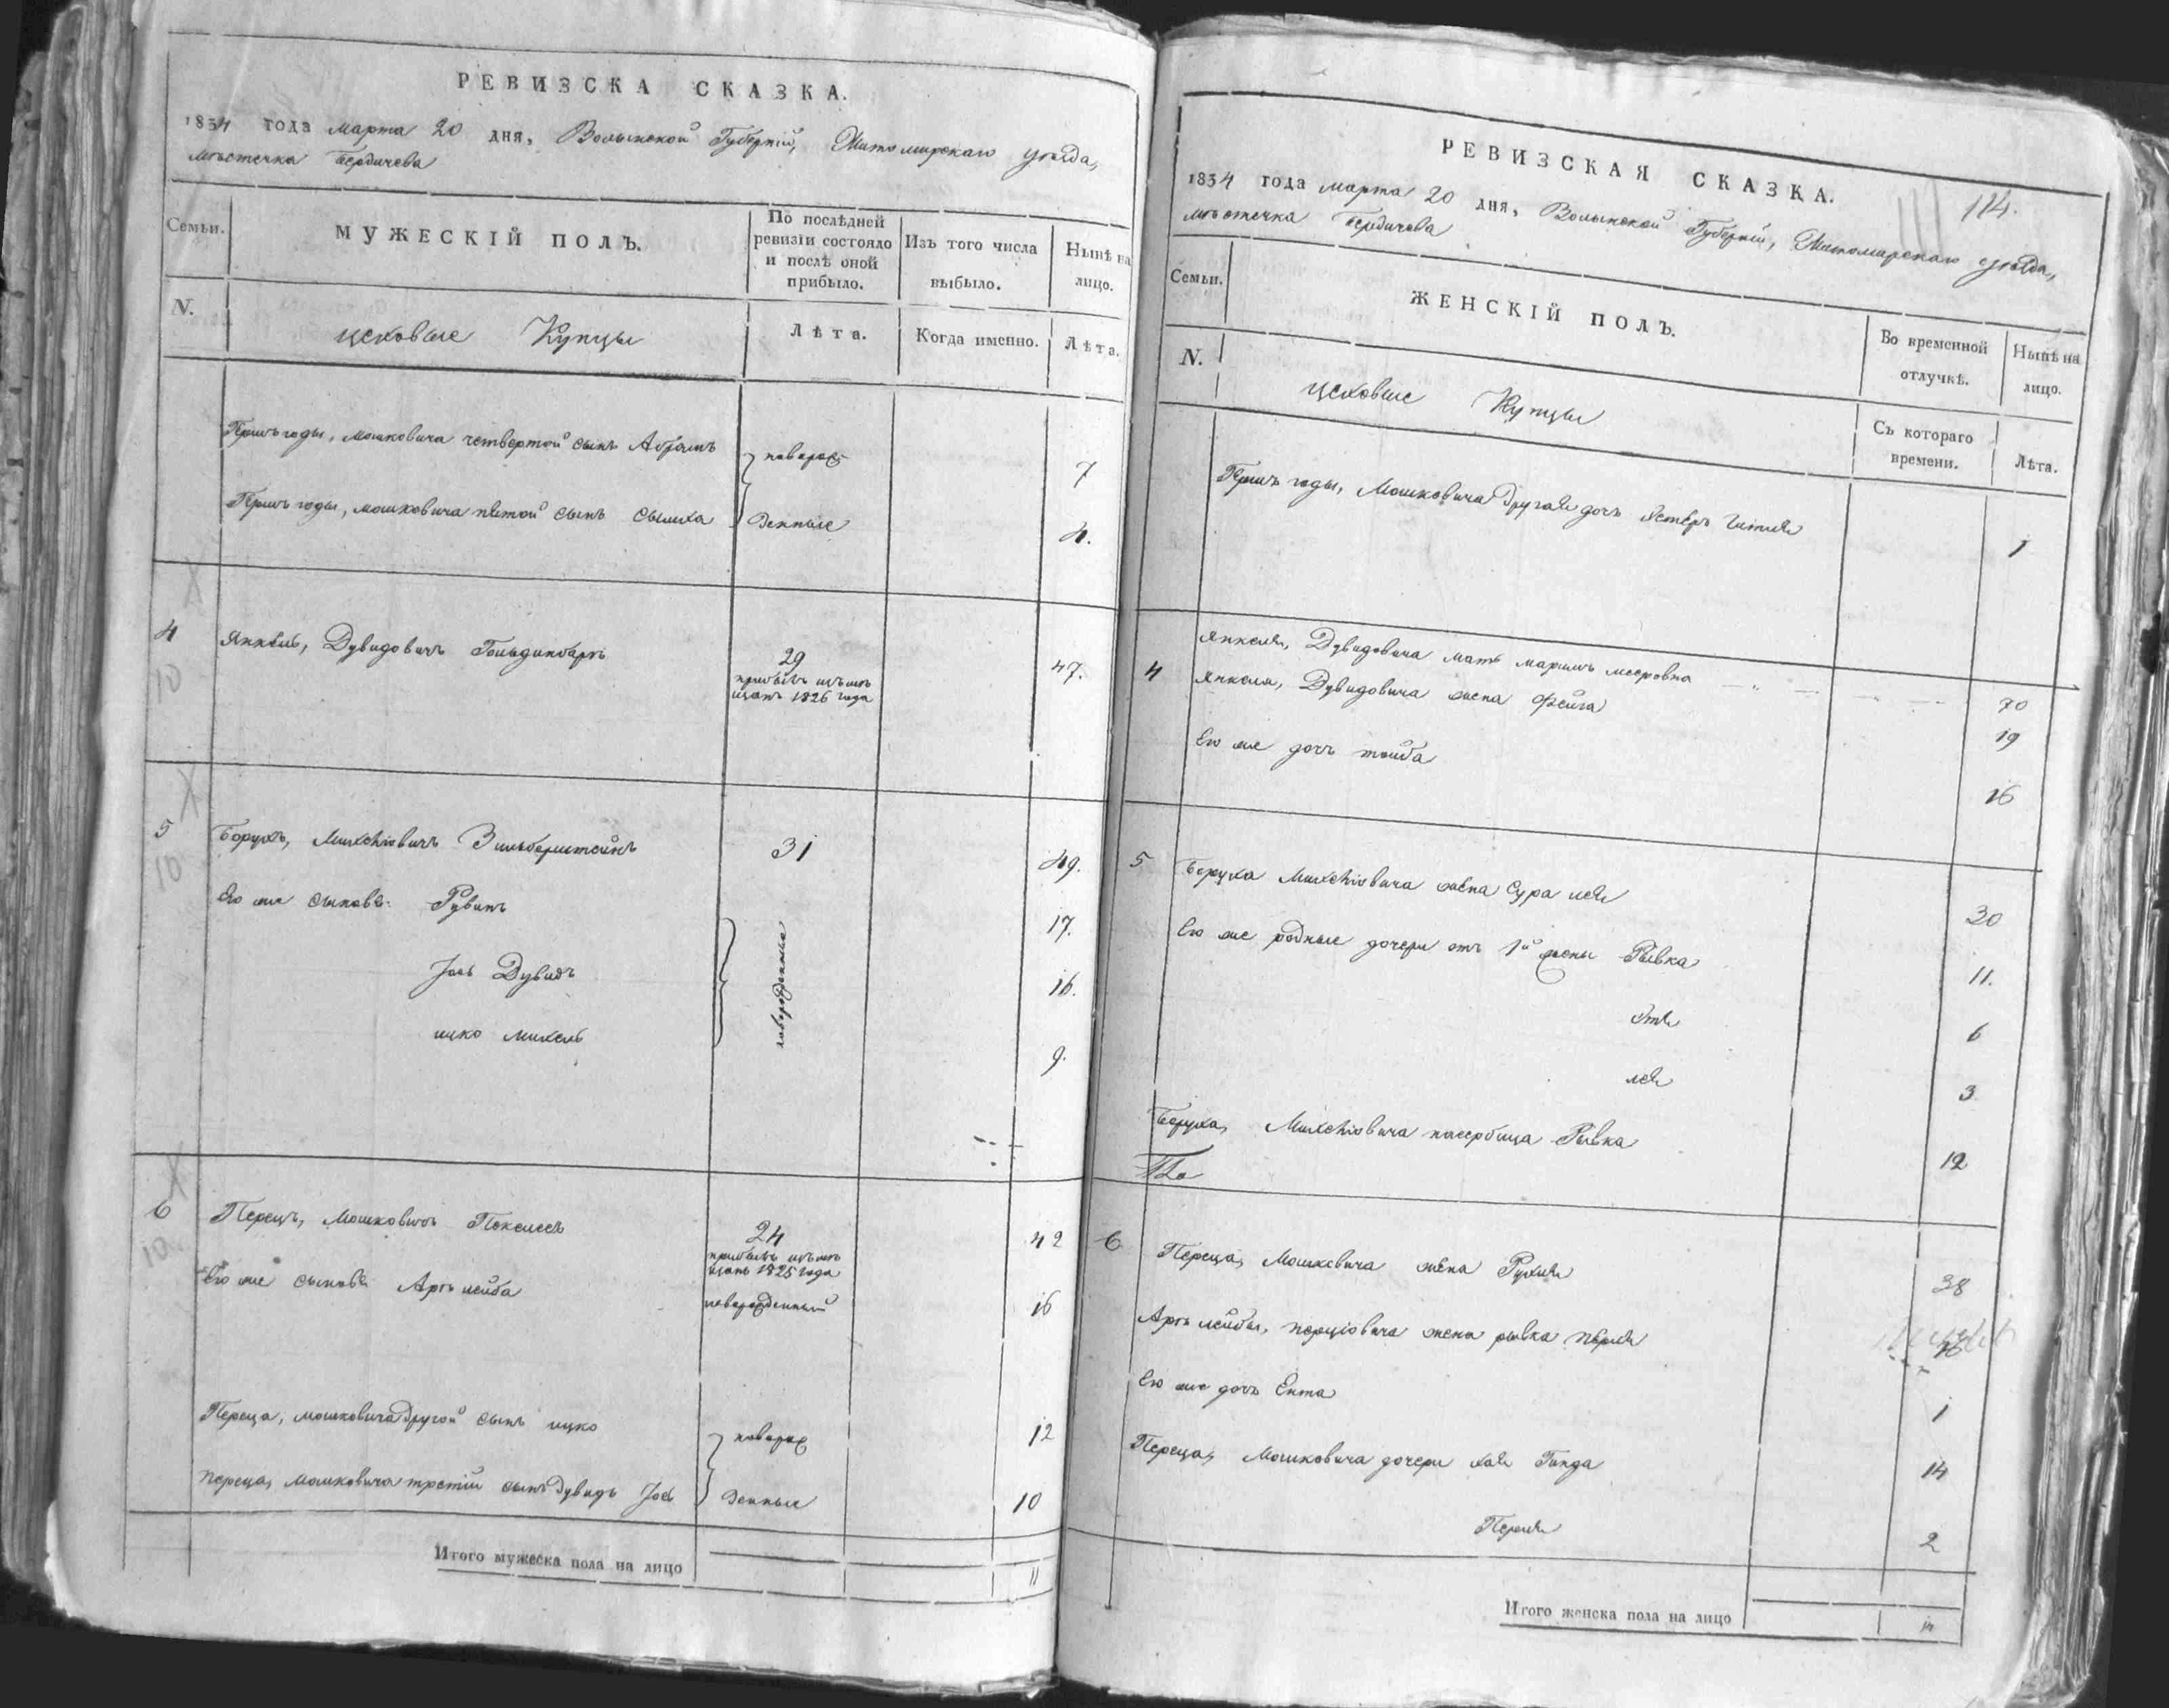 РЕВИЗСКА СКАЗКА.
1834 года марта 20 дня, Волынской Губерніи, Житомирскаго уѣзда,
мѣстечка Бердичева
Семьи.
МУЖЕСКІЙ ПОЛЪ.
По послѣдней
ревизіи состояло
и послѣ оной
прибыло.
Изъ того числа
выбыло.
Нынѣ на
лицо.
N.
Купцы
Лѣта.
Когда именно.
Лѣта.
Мошковича четвертой сынъ Абрамъ
новорож
7
мошковича пятой сынъ
денные
4.
4
10
Янкель, Дувидовичъ
29
прибылъ изъ мѣ
щанъ 1826 года
47.
5
10
Борухъ, Зильберштейнъ
31
49.
Его же сыновья Рувинъ
новорожденные
17.
Іось Дувидъ
16.
ицко михель
9.
6
10
Перецъ, Мошковичъ
24
прибылъ изъ мѣ
щанъ 1825 года
42
Его же сыновья Аръ лейба
новорожденный
16
Переца, мошковича другой сынъ ицко
новорож
12
переца, мошковича третій сынъ Дувидъ Іось
денные
10
Итого мужеска пола на лицо
11
РЕВИЗСКАЯ СКАЗКА.
114.
1834 года марта 20 дня, Волынской Губерніи, Житомирскаго уѣзда,
мѣстечка Бердичева
Семьи.
ЖЕНСКІЙ ПОЛЪ.
Во временной
отлучкѣ.
Нынѣ на
лицо.
N.
Купцы
Съ котораго
времени.
Лѣта.
Мошковича другая дочь
1
4
Янкеля, Дувидовича мать маріимъ мееровна
70
Янкеля, Дувидовича жена Фейга
19
Его же дочь тойба
16
5
Боруха жена Сура лея
30
Его же родные дочери отъ 1й жены Рывка
11.
Этя
6
лея
3
Боруха, пасербица Рывка
12
6
Переца, Мошковича жена Рухля
38
Аръ лейбы, перціовича жена рывка перля
Его же дочь Ента
1
Переца, Мошковича дочери хая Гинда
14
Перля
2
Итого женска пола на лицо